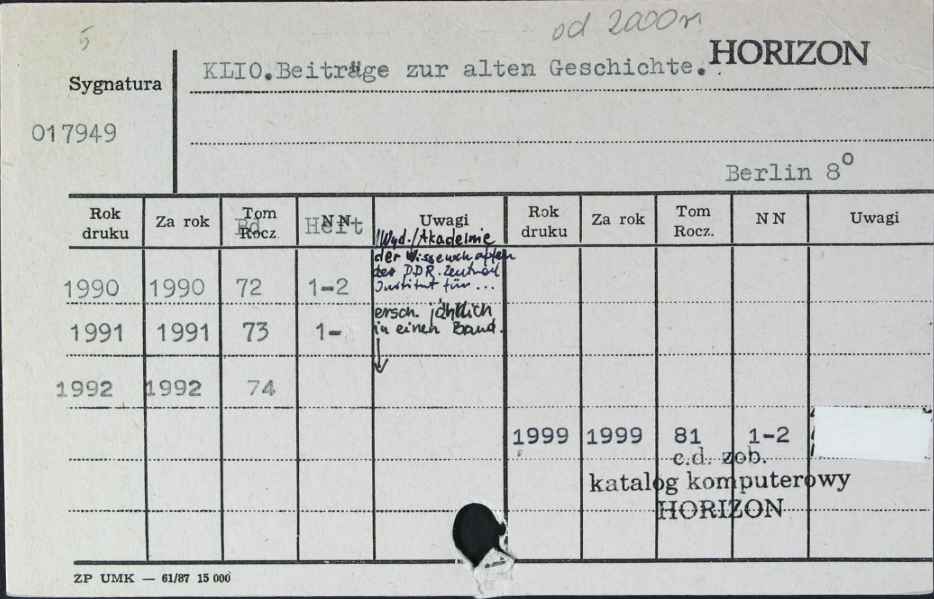 5
od 2000 r
HORIZON
Sygnatura
KLIO.Beiträge zur alten Geschichte.
017949
Berlin 8°
Rok druku Za rok Tom Rocz. Bd NN Heft Uwagi Rok druku Za rok Tom Rocz. NN Uwagi
/Wyd./Akademie
der Wissenschaften
der DDR. Zentral
Institut für...
1990 1990 72 1-2
ersch. jährlich
in einen Band.
1991 1991 73 1-
1992 1992 74
1999 1999 81 1-2
c.d. zob.
katalog komputerowy
HORIZON
ZP UMK — 61/87 15 000